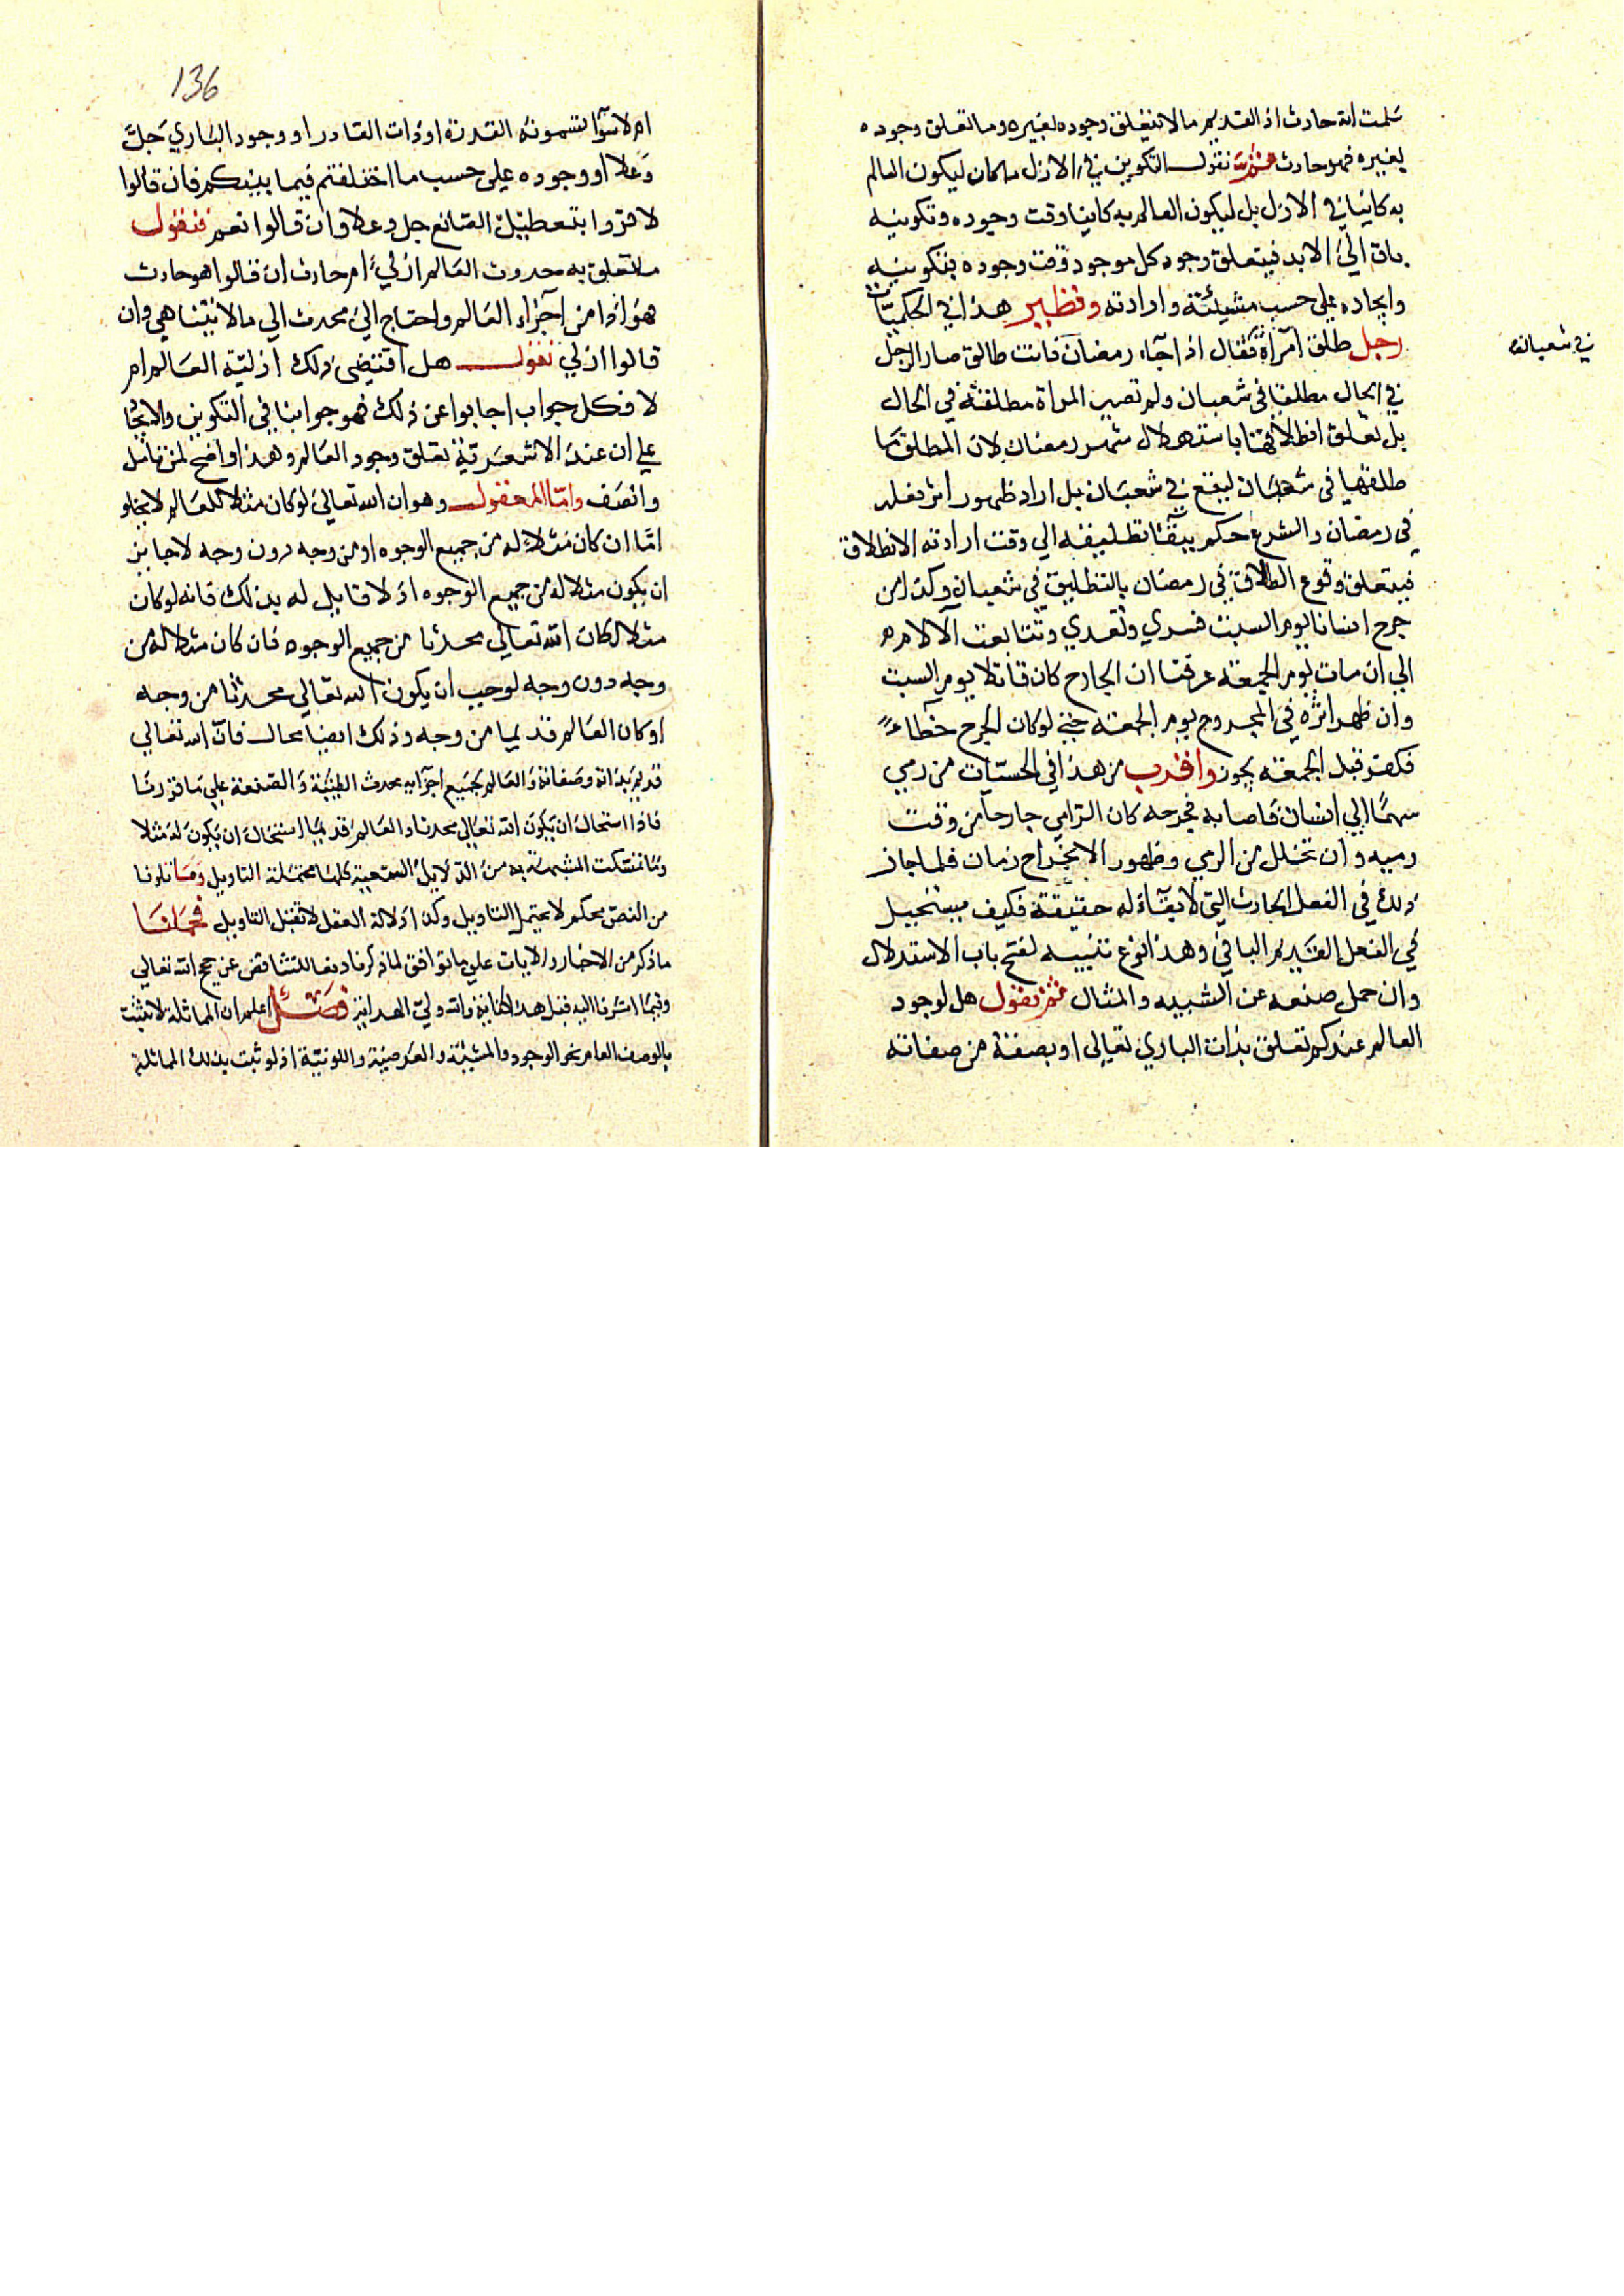 سلمت انه حادث اذ القديم ما لا يتعلق وجوده لغيره وما تعلق وجوده
لغيره فهو حادث ثم نقول التكوين في الازل ما كان ليكون العالم
به كاينا في الازل بل ليكون العالم به كاينا وقت وجوده وتكوينه
باق الي الابد فيتعلق وجود كل موجود وقت وجوده بتكوينه
وايجاده علي حسب مشيئته وارادته ونظير هذا في الحكميات
رجل طلق امراة فقال اذا جآء رمضان فانت طالق صار الرجل
في شعبان
في الحال مطلقا في شعبان ولم تصير المراة مطلقة في الحال
بل تعلق انطلاقها باستهلال شهر رمضان لان المطلق ما
طلقها في شعبان ليقع في شعبان بل اراد ظهور اثر فعله
في رمضان والشرع حكم ببقآء تطليقه الي وقت ارادته الانطلاق
فيتعلق وقوع الطلاق في رمضان بالتطليق في شعبان وكذا من
جرح انسانا يوم السبت فسري وتعدي وتتابعت الآلام
الي ان مات يوم الجمعة عرفنا ان الجارح كان قاتلا يوم السبت
وان ظهر اثره في المجروح يوم الجمعة حتي لوكان الجرح خطاء
فكفر قبل الجمعة يجوز واقرب من هذا في الحسيات من رمي
سهما الي انسان فاصابه فجرحه كان الرامي جارحا من وقت
رميه وان تخلل من الرمي وظهور الانجراح زمان فلما جاز
ذلك في الفعل الحادث التي لا بقآء له حقيقة فكيف يستحيل
في الفعل القديم الباقي وهذا نوع تنبيه لفتح باب الاستدلال
وان حمل صنعه عن الشبيه والمثال ثم نقول هل لوجود
العالم عندكم تعلق بذات الباري تعالي او بصفة من صفاته
136
ام لا سوآ تسمونه القدرة او ذات القادر او وجود الباري جل
وعلا او وجوده علي حسب ما اختلفتم فيما بينكم فان قالوا
لا قروا بتعطيل الصانع جل وعلا وان قالوا نعم فنقول
ما تعلق به حدوث العالم ازلي ام حادث ان قالوا هو حادث
هو اذا من اجزاء العالم واحتاج الي محدث الي ما لا يتناهي وان
قالوا ازلي نقول هل اقتضي ذلك ازلية العالم ام
لا فكل جواب اجابوا عن ذلك فهو جوابنا في التكوين والايجا
علي ان عند الاشعرية تعلق وجود العالم وهذا واضح لمن تامل
وانصف واما المعقول وهو ان الله تعالي لوكان مثلا للعالم لا يخلو
اما ان كان مثلا له من جميع الوجوه او من وجه دون وجه لا جايز
ان يكون مثلا له من جميع الوجوه اذ لا قايل له بذلك فانه لوكان
مثلا لكان الله تعالي محدثا من جميع الوجوه فان كان مثلا له من
وجه دون وجه لوجب ان يكون الله تعالي محدثا من وجه
او كان العالم قديما من وجه وذلك ايضا محال فان الله تعالي
قديم بذاته وصفاته والعالم بجميع اجزايه محدث الطينية والصنعة علي ما قررنا
فاذا استحال ان يكون الله تعالي محدثا والعالم قديما استحال ان يكون له مثلا
وما تمسكت المشبهة به من الدلايل السمعية كلها محتملة التاويل وما تلونا
من النص محكم لا يحتمل التاويل وكذا دلالة العقل لا تقبل التاويل فحملنا
ما ذكر من الاخبار والايات علي ما توافق لما ذكرنا دفعا للتناقض عن حجج الله تعالي
وفيما اشرنا اليه قبل هذا كفاية والله ولي الهداية فصل اعلم ان المماثلة لا تثبت
بالوصف العام نحو الوجود والمشيئة والعرضية واللونية اذ لو ثبت بذلك المماثلة